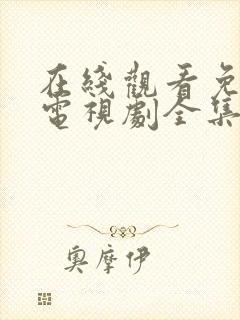 在綫觀看免
電視劇全集
奧摩伊